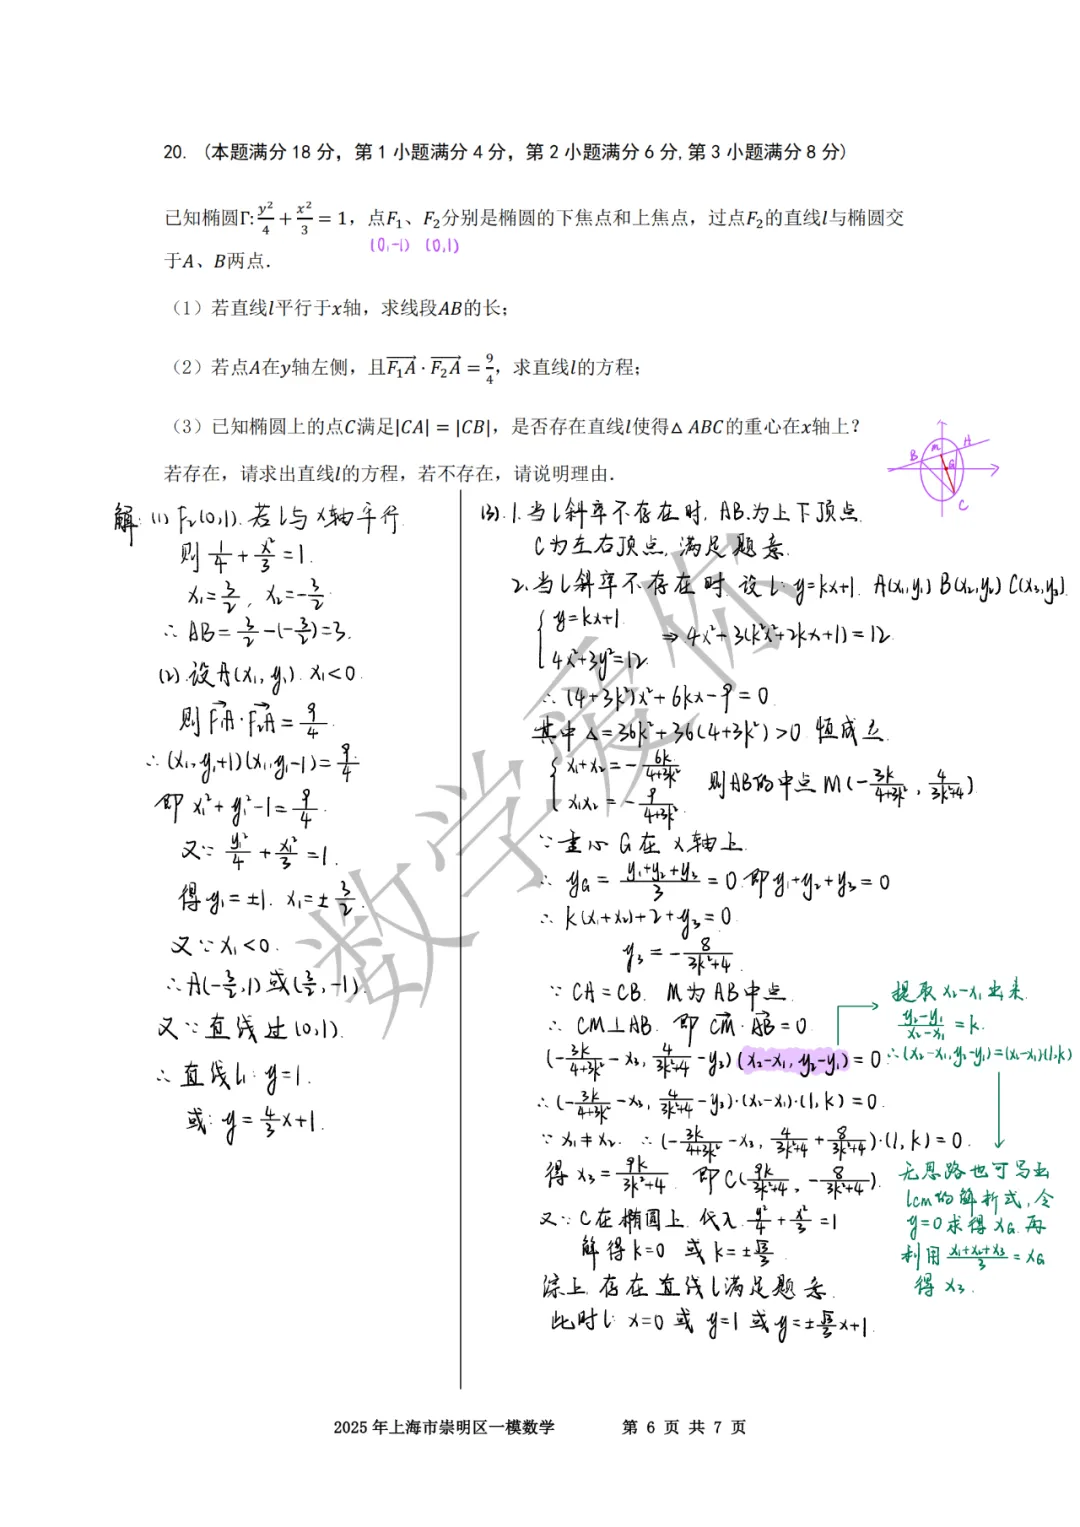 20.（本题满分 18 分，第 1 小题满分 4 分，第 2 小题满分 6 分,第 3 小题满分 8 分）
已知椭圆Γ: y²/4 + x²/3 = 1，点F₁、F₂分别是椭圆的下焦点和上焦点，过点F₂的直线l与椭圆交
(0,-1) (0,1)
于A、B两点.
（1）若直线l平行于x轴，求线段AB的长；
（2）若点A在y轴左侧，且F₁A · F₂A = 9/4，求直线l的方程；
（3）已知椭圆上的点C满足|CA| = |CB|，是否存在直线l使得△ ABC的重心在x轴上？
若存在，请求出直线l的方程，若不存在，请说明理由.
B M A G C
解: (1) F₂(0,1). 若l与x轴平行
则 1/4 + x²/3 = 1.
x₁=3/2, x₂=-3/2
∴ AB= 3/2-(-3/2)=3.
(2) 设A(x₁, y₁). x₁<0.
则 F₁A·F₂A = 9/4
∴ (x₁, y₁+1)(x₁, y₁-1)= 9/4
即 x₁²+y₁²-1= 9/4
又∵ y₁²/4 + x₁²/3 =1.
得 y₁=±1. x₁=±3/2
又∵ x₁<0.
∴ A(-3/2,1) 或(3/2,-1).
又∵ 直线过(0,1).
∴ 直线l: y=1.
或: y= 4/3x+1.
(3). 1. 当l斜率不存在时, AB.为上下顶点
C为左右顶点, 满足题意.
2. 当l斜率不存在时 设l: y=kx+1. A(x₁,y₁) B(x₂,y₂) C(x₃,y₃).
{ y=kx+1
4x²+3y²=12. ⇒ 4x²+3(k²x²+2kx+1)=12.
∴ (4+3k²)x²+6kx-9=0.
其中 Δ=36k²+36(4+3k²)>0 恒成立
{ x₁+x₂=- 6k/(4+3k²)
x₁x₂ = - 9/(4+3k²) 则AB的中点M(-3k/(4+3k²), 4/(3k²+4))
∵ 重心G在x轴上.
∴ y_G = (y₁+y₂+y₃)/3 = 0. 即 y₁+y₂+y₃=0
∴ k(x₁+x₂)+2+y₃=0.
y₃=- 8/(3k²+4)
∵ CA=CB. M为AB中点.
∴ CM⊥AB. 即 CM·AB=0.
(-3k/(4+3k²) -x₃, 4/(3k²+4) -y₃)(x₂-x₁, y₂-y₁)=0
∴ (-3k/(4+3k²) -x₃, 4/(3k²+4) -y₃)·(x₂-x₁)·(1,k)=0.
∵ x₁≠x₂. ∴ (-3k/(4+3k²) -x₃, 4/(3k²+4) + 8/(3k²+4))·(1,k)=0.
得 x₃= 9k/(3k²+4). 即 C(9k/(3k²+4), -8/(3k²+4)).
又∵ C在椭圆上. 代入 y²/4 + x²/3 =1
综上, 存在直线l满足题意.
提取 x₂-x₁ 出来.
(y₂-y₁)/(x₂-x₁) =k.
∴ (x₂-x₁, y₂-y₁)=(x₂-x₁)(1,k)
无思路也可写出
lCM的解析式, 令
y=0求得x_G. 再
利用 (x₁+x₂+x₃)/3 = x_G
得 x₃.
数学爱你
2025 年上海市崇明区一模数学 第 6 页 共 7 页